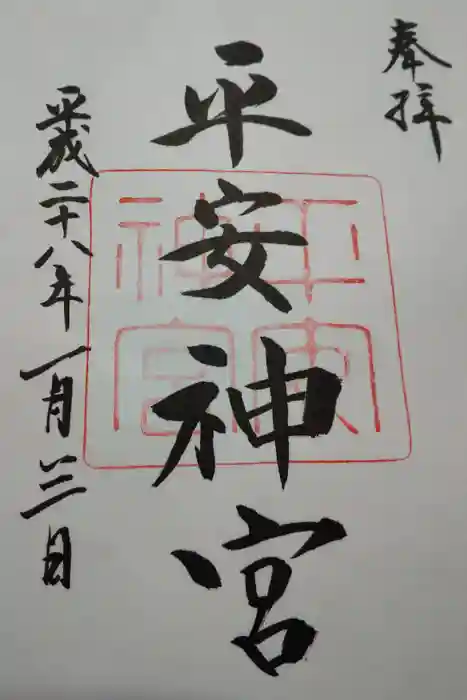 奉拝
平安神宮
平安神宮
平成二十八年一月三日